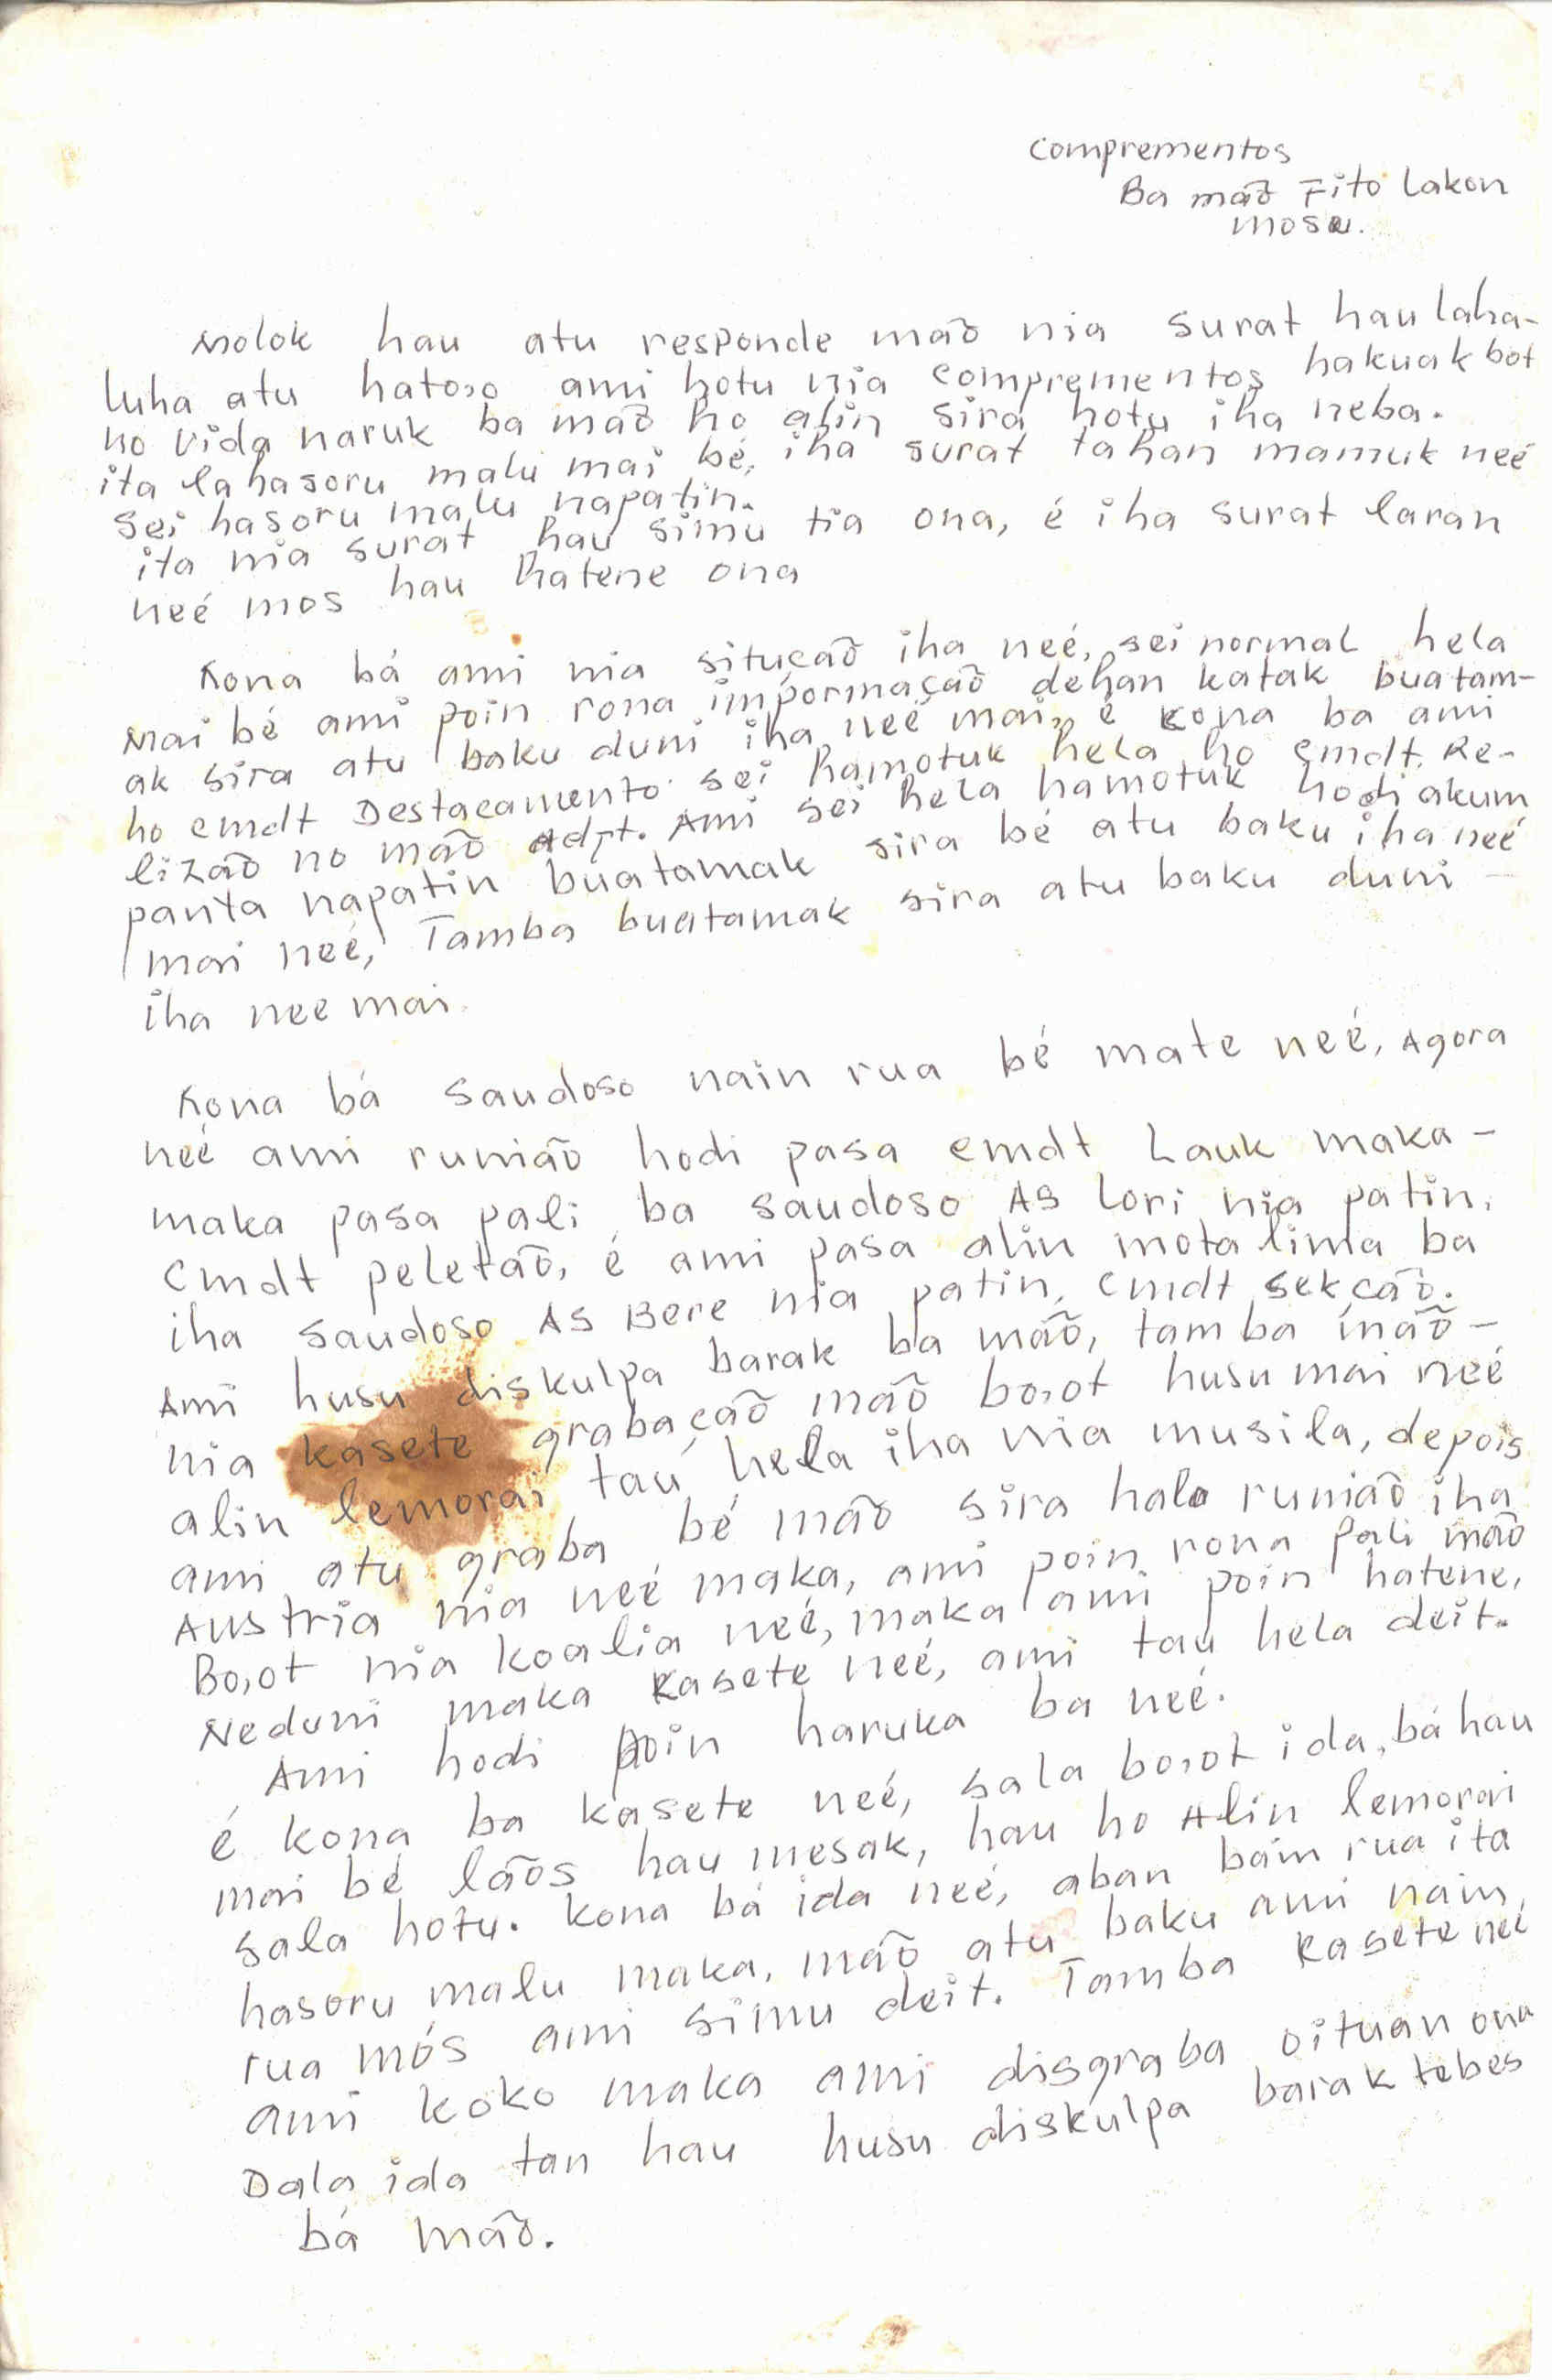 Comprementos
Ba mãõ Fito Lakon
mosu.
Molok hau atu responde mãõ nia surat hau laha-
luha atu hato,o ami hotu nia comprementos hakuak bot
no vida naruk ba mãõ ho alin sira hotu iha neba.
ita lahasoru malu mai bé, iha surat tahan mamuk neé
sei hasoru malu napatin.
ita nia surat hau simu tia ona, é iha surat laran
neé mos hau hatene ona
Kona bá ami nia situçaõ iha neé, sei normal hela
Mai bé ami poin rona impormaçaõ dehan katak buatam-
ak sira atu baku duni iha neé mai, é kona ba ami
ho cmdt Destacamento sei hamotuk hela ho cmdt. Re-
lizãõ no mãõ Adpt. Ami sei hela hamotuk hodi akum
panta napatin buatamak sira bé atu baku iha neé
mai neé, Tamba buatamak sira atu baku duni -
iha nee mai.
Kona bá saudoso nain rua bé mate neé, Agora
neé ami runiãõ hodi pasa cmdt Lauk maka -
maka pasa pali ba saudoso AS Lori nia patin,
Cmdt peletãõ, é ami pasa alin mota lima ba
iha saudoso AS Bere nia patin, Cmdt sekçãõ.
Ami husu diskulpa barak ba mãõ, tamba mãõ -
nia kasete grabaçãõ mãõ bo,ot husu mai neé
alin lemorai tau hela iha nia musila, depois
ami atu graba bé mãõ sira halo runiãõ iha
Austria nia neé maka, ami poin rona pali mãõ
Bo,ot nia koalia neé, maka ami poin hatene,
Neduni maka Kasete neé, ami tau hela deit.
Ami hodi poin haruka ba neé.
é kona ba kasete neé, sala bo,ot ida, bá hau
mai bé lãõs hau mesak, hau ho Alin lemorai
sala hotu. kona bá ida neé, aban bain rua ita
hasoru malu maka, mãõ atu baku ami nain
rua mós ami simu deit. Tamba Kasete neé
ami koko maka ami disgraba oituan ona
Dala ida tan hau husu diskulpa barak tebes
bá mãõ.